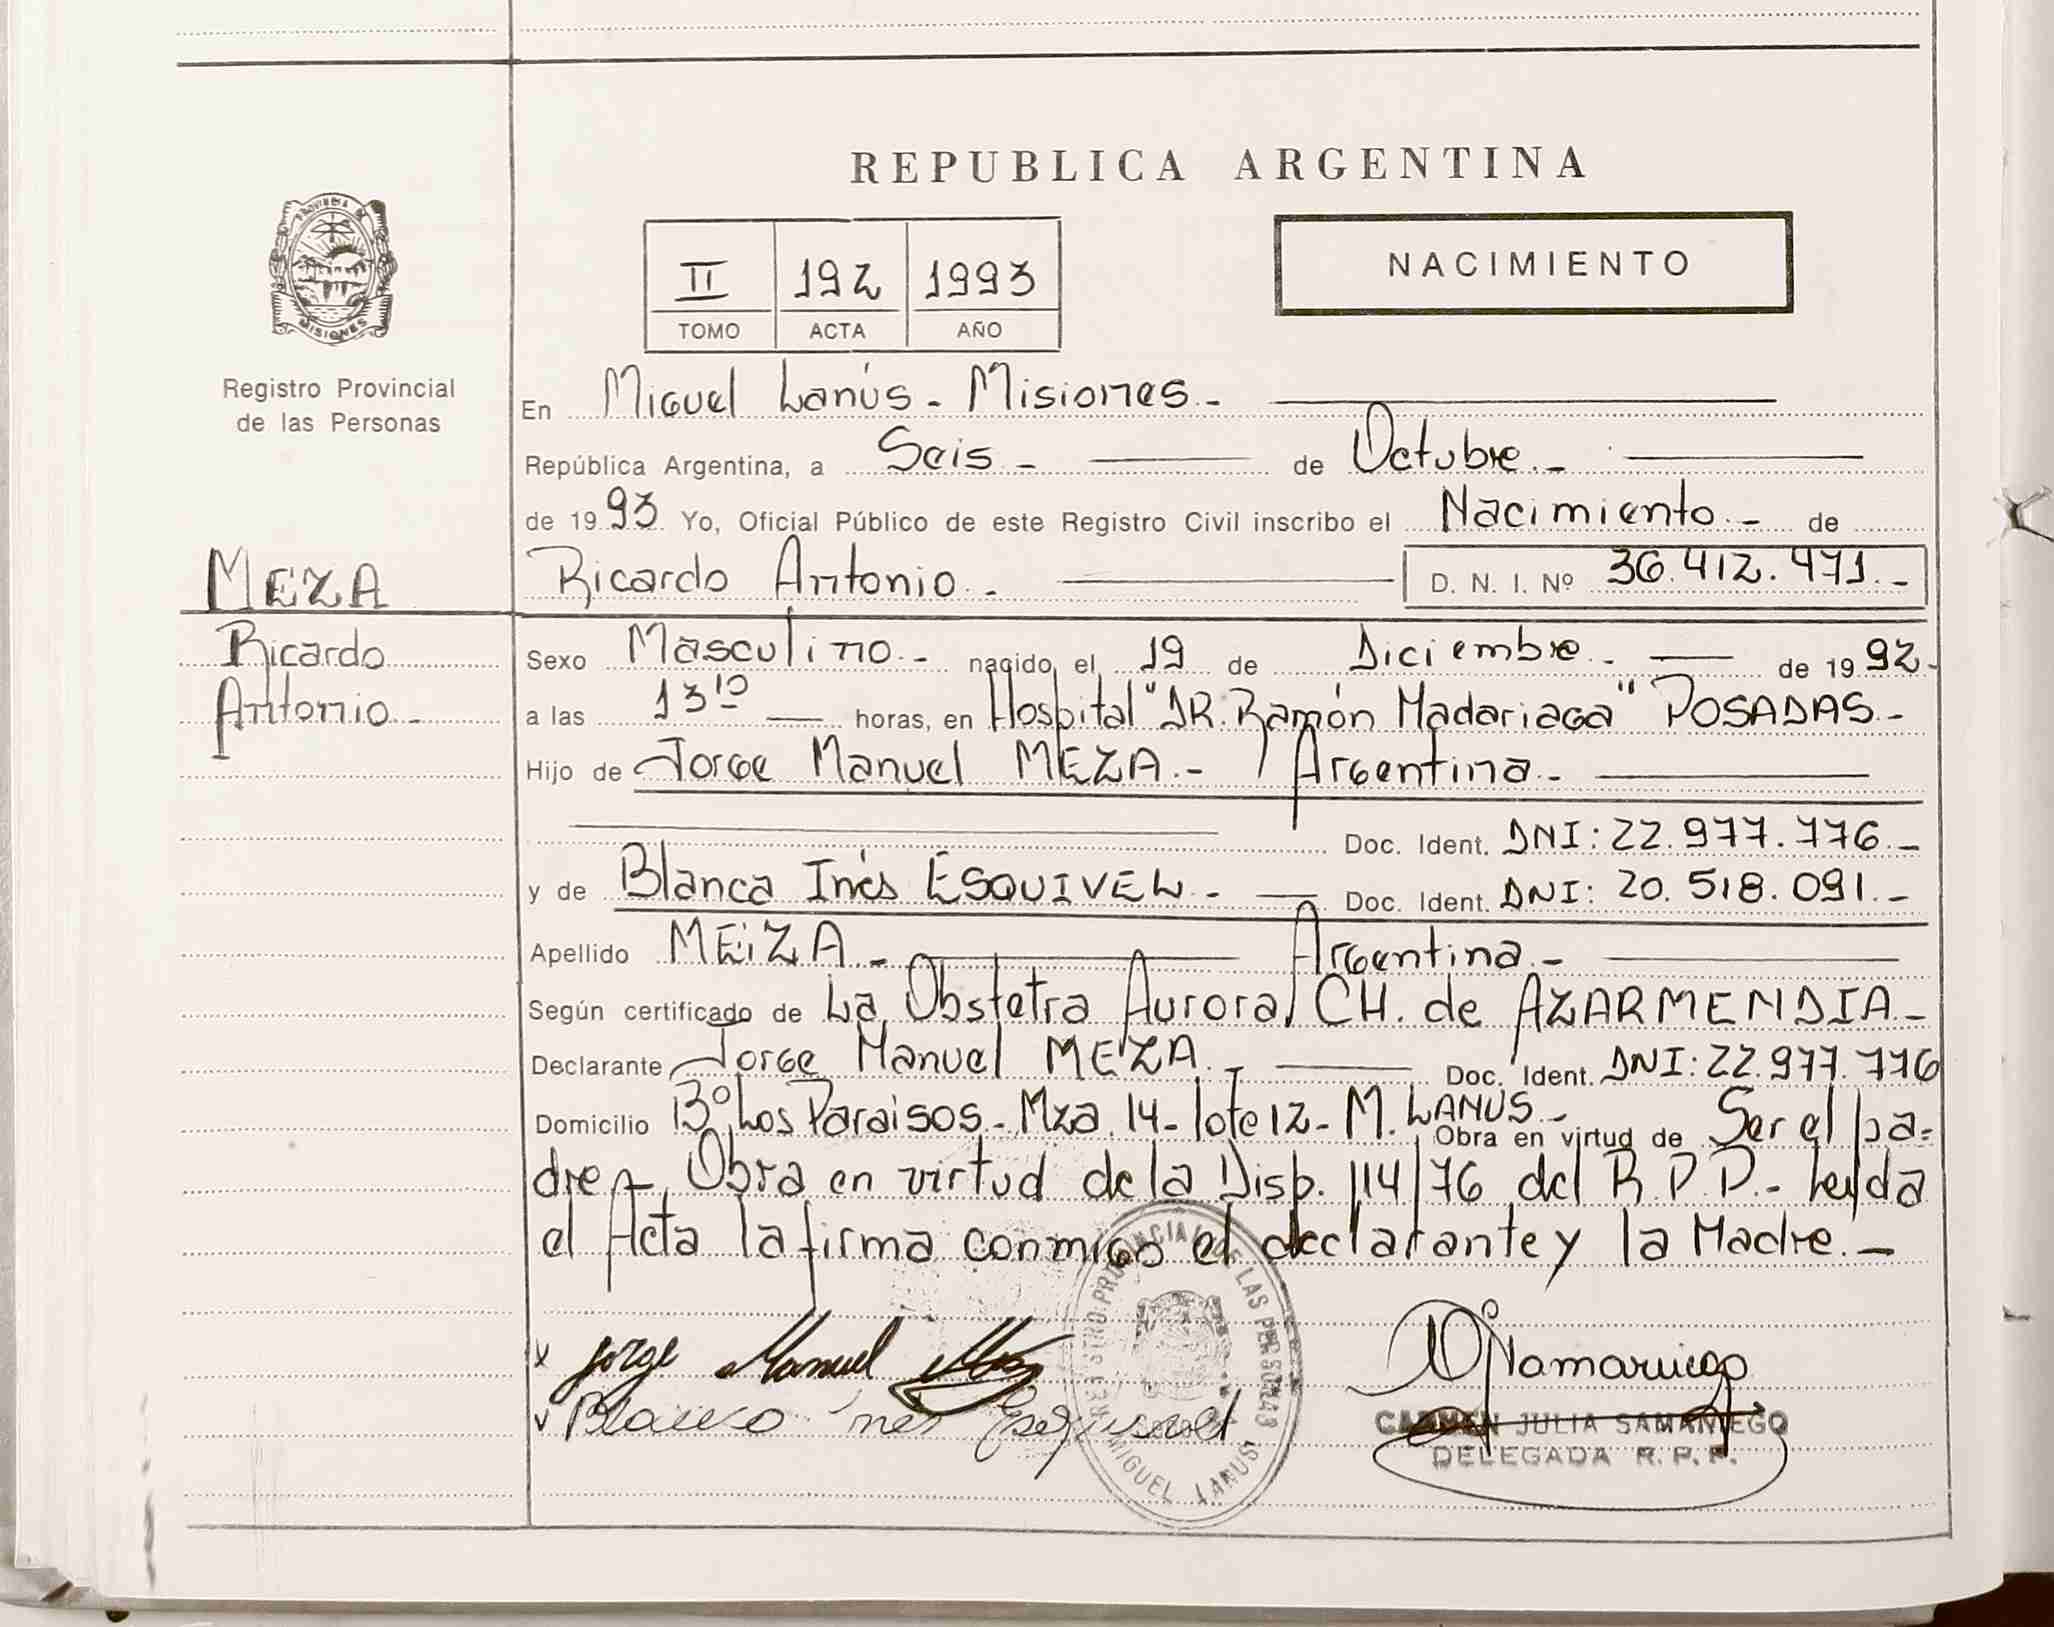 REPUBLICA ARGENTINA
II 192 1993
TOMO ACTA AÑO
NACIMIENTO
PROVINCIA DE
MISIONES
Registro Provincial
de las Personas
En Miguel Lanús - Misiones.-
República Argentina, a Seis.- de Octubre.-
de 1993 Yo, Oficial Público de este Registro Civil inscribo el Nacimiento.- de
MEZA
Ricardo Antonio.- D. N. I. Nº 36.412.471.-
Ricardo
Antonio.-
Sexo Masculino.- nacido el 19 de Diciembre.- de 1992.-
a las 13 10 horas, en Hospital "DR. Ramón Madariaga" POSADAS.-
Hijo de Jorge Manuel MEZA.- Argentina.-
Doc. Ident. DNI: 22.977.776.-
y de Blanca Inés ESQUIVEL.- Doc. Ident. DNI: 20.518.091.-
Apellido MEZA.- Argentina.-
Según certificado de La Obstetra Aurora CH. de AZARMENDIA.-
Declarante Jorge Manuel MEZA.- Doc. Ident. DNI: 22.977.776
Domicilio Bº Los Paraisos - Mza. 14 - lote 12 - M. LANUS.-
Obra en virtud de Ser el pa=
dre.- Obra en virtud de la Disp. 114/76 del R.P.P.- Leyda
el Acta la firma conmigo el declarante y la Madre.-
x Jorge Manuel Meza
v Blanca ines Esquivel
REGISTRO PROVINCIAL DE LAS PERSONAS
MIGUEL LANUS
CARMEN JULIA SAMANIEGO
DELEGADA R.P.P.